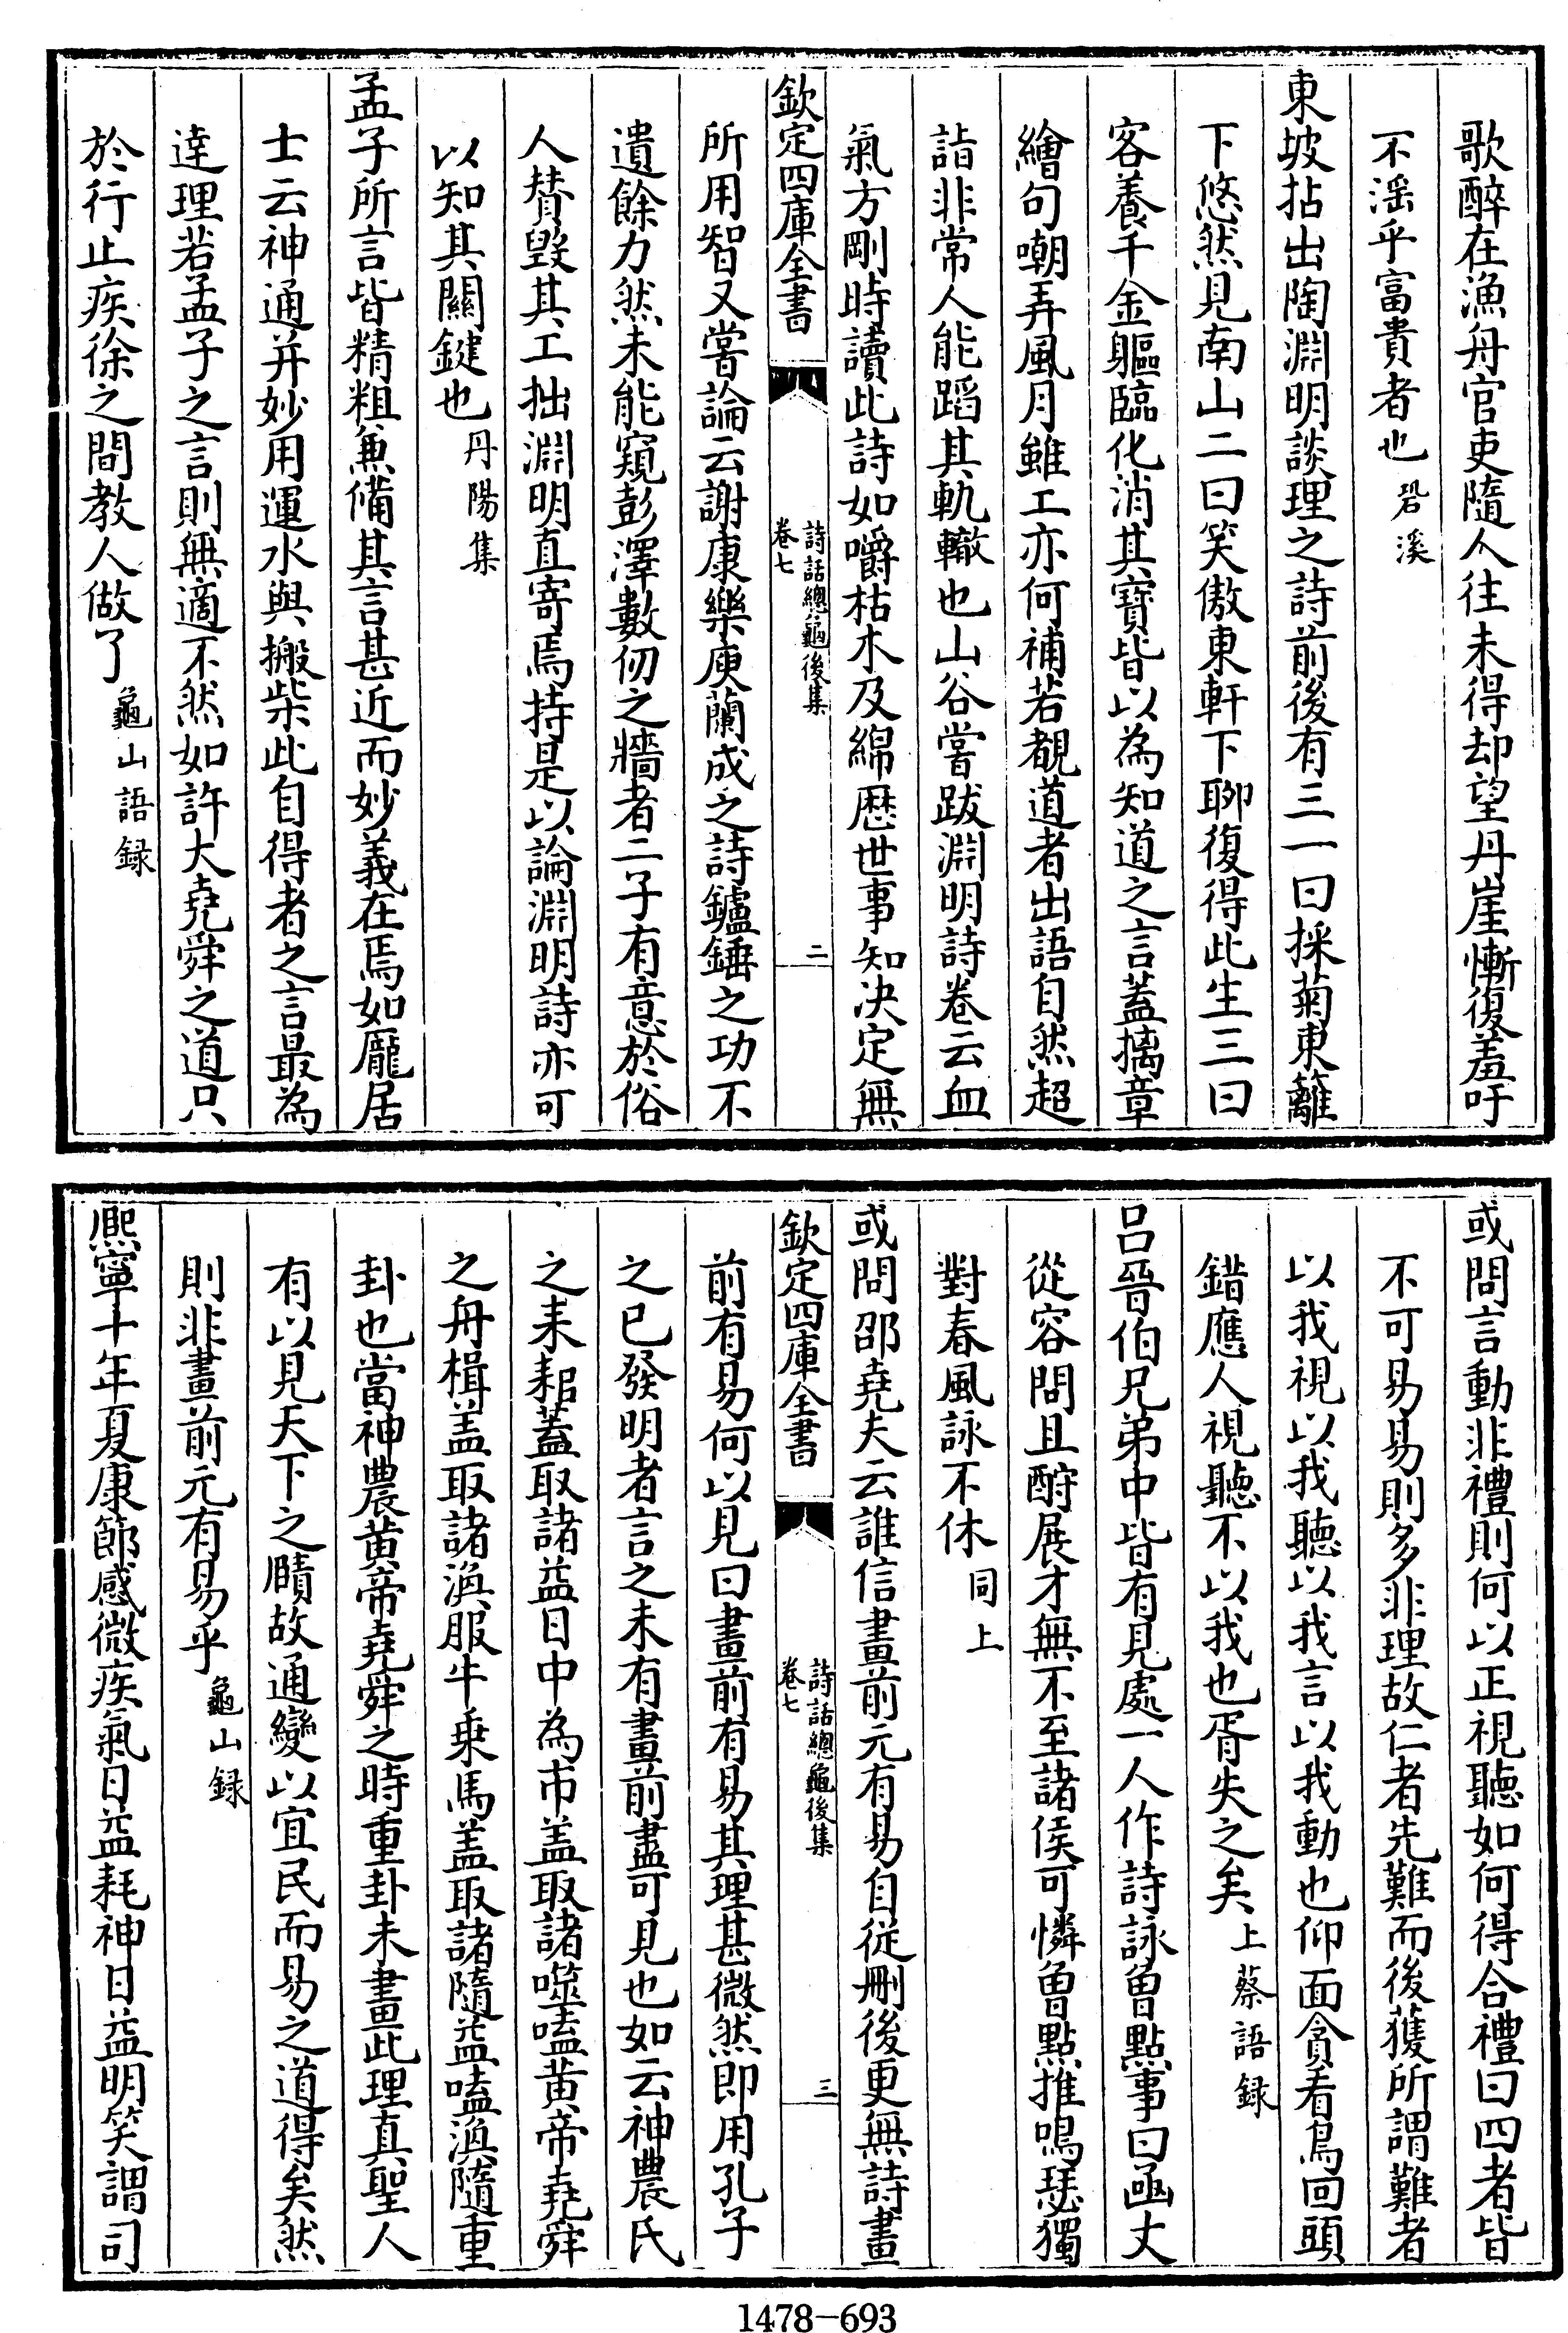 歌醉在漁舟官吏隨人往未得却望丹崖慚復羞吁
不滛乎富貴者也 䂬溪
東坡拈出陶淵明談理之詩前後有三一曰採菊東籬
下悠然見南山二曰笑傲東軒下聊復得此生三曰
客養千金軀臨化消其寶皆以為知道之言蓋摛章
繪句嘲弄風月雖工亦何補若覩道者出語自然超
詣非常人能蹈其軌轍也山谷嘗跋淵明詩卷云血
氣方剛時讀此詩如嚼枯木及綿歴世事知決定無
欽定四庫全書 詩話總龜後集 卷七 二
所用智又嘗論云謝康樂庾蘭成之詩鑪錘之功不
遺餘力然未能窺彭澤數仞之牆者二子有意於俗
人賛毀其工拙淵明直寄焉持是以論淵明詩亦可
以知其關鍵也 丹陽集
孟子所言皆精粗兼備其言甚近而妙義在焉如龐居
士云神通并妙用運水與搬柴此自得者之言最為
逹理若孟子之言則無適不然如許大堯舜之道只
於行止疾徐之間教人做了 龜山語録
或問言動非禮則何以正視聽如何得合禮曰四者皆
不可易易則多非理故仁者先難而後獲所謂難者
以我視以我聽以我言以我動也仰面貪看鳥回頭
錯應人視聽不以我也胥失之矣 上蔡語録
呂晉伯兄弟中皆有見處一人作詩詠曾點事曰函丈
從容問且酧展才無不至諸侯可憐曾點推鳴瑟獨
對春風詠不休 同上
或問邵堯夫云誰信畫前元有易自從刪後更無詩畫
欽定四庫全書 詩話總龜後集 卷七 三
前有易何以見曰畫前有易其理甚微然即用孔子
之已發明者言之未有畫前盡可見也如云神農氏
之耒耜蓋取諸益日中為市盖取諸噬嗑黄帝堯舜
之舟楫盖取諸渙服牛乗馬盖取諸隨益嗑渙隨重
卦也當神農黄帝堯舜之時重卦未畫此理真聖人
有以見天下之賾故通變以宜民而易之道得矣然
則非畫前元有易乎 龜山録
熈寧十年夏康節感微疾氣日益耗神日益明笑謂司
1478-693